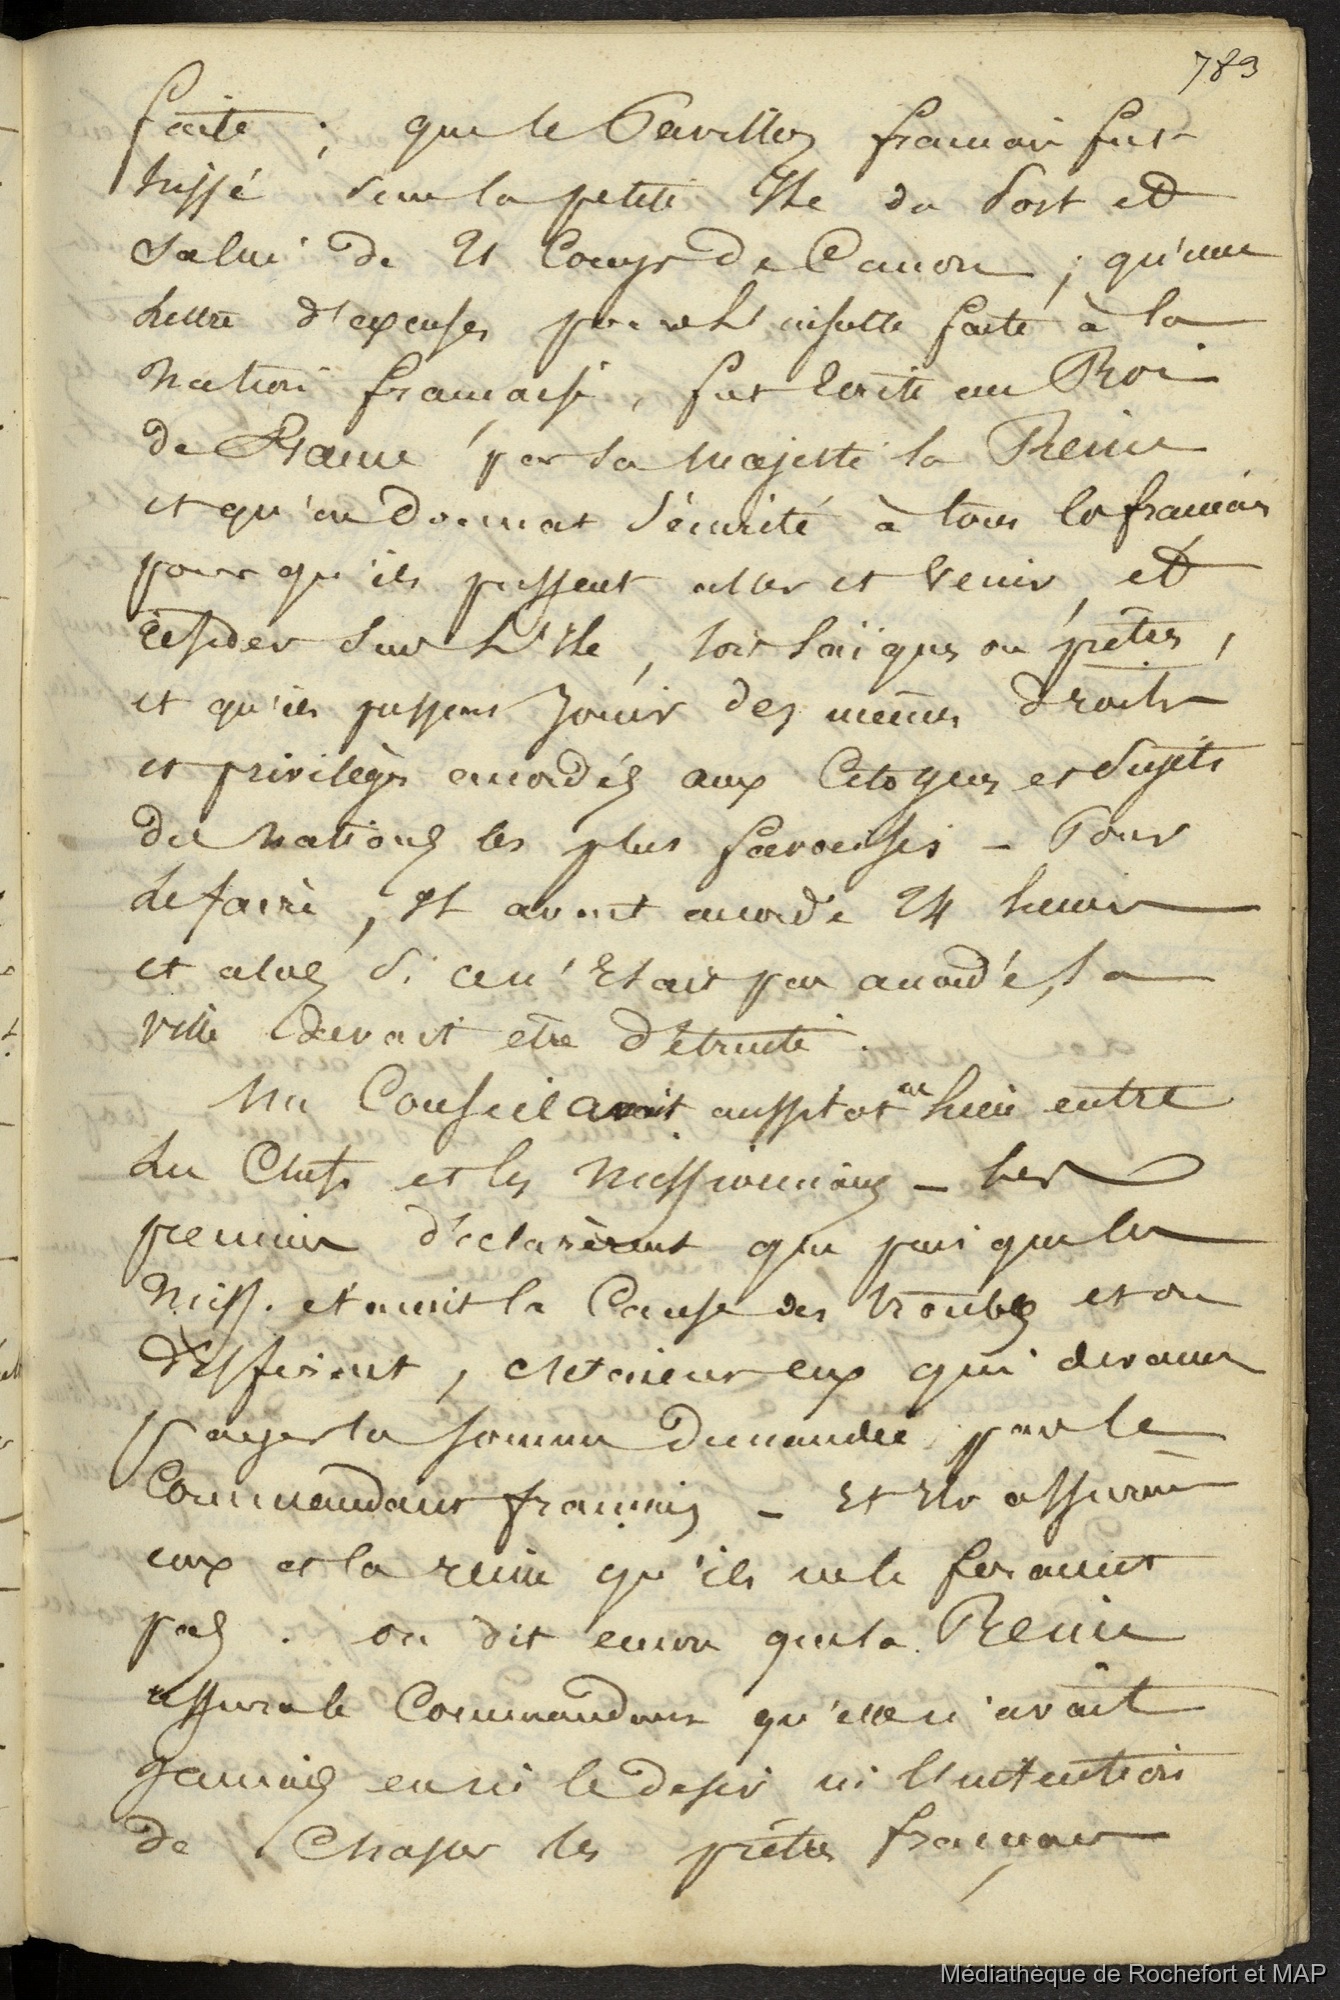 783
faite ; que le Pavillon francais fut
hissé sur la petite Ile du Port et
salué de 21 Coups de Canon ; qu'une
lettre d'excuses pour L'insulte faite à la
Nation française, fut Ecrite au Roi
de France par sa Majesté la Reine
et qu'on donnat sécurité à tous les francais
pour qu'ils pussent aller et venir, et
résider sur L'Ile, soit laïques ou prêtres,
et qu'ils pussent Jouir des mêmes droits
et privilèges accordés aux Citoyens et Sujets
des Nations les plus favorisés – Pour
le faire, Il avait accordé 24 heures
et alors si ce n'Etait pas accordé, la
ville devait être détruite.
Un Conseil avait aussitot eu lieu entre
les Chefs et les Missionnaires – Les
premiers déclarèrent que puisque les
Miss. etaient la Cause des troubles et
, c'etaient eux qui devaient
payer la somme demandée par le
Commandant francais – Et Ils assurèrent
eux et la reine qu'ils ne le feraient
pas. on dit encore que la Reine
assura le Commandant qu'elle n'avait
Jamais eu ni le desir ni L'intention
de Chasser les prêtres français
Médiathèque de Rochefort et MAP